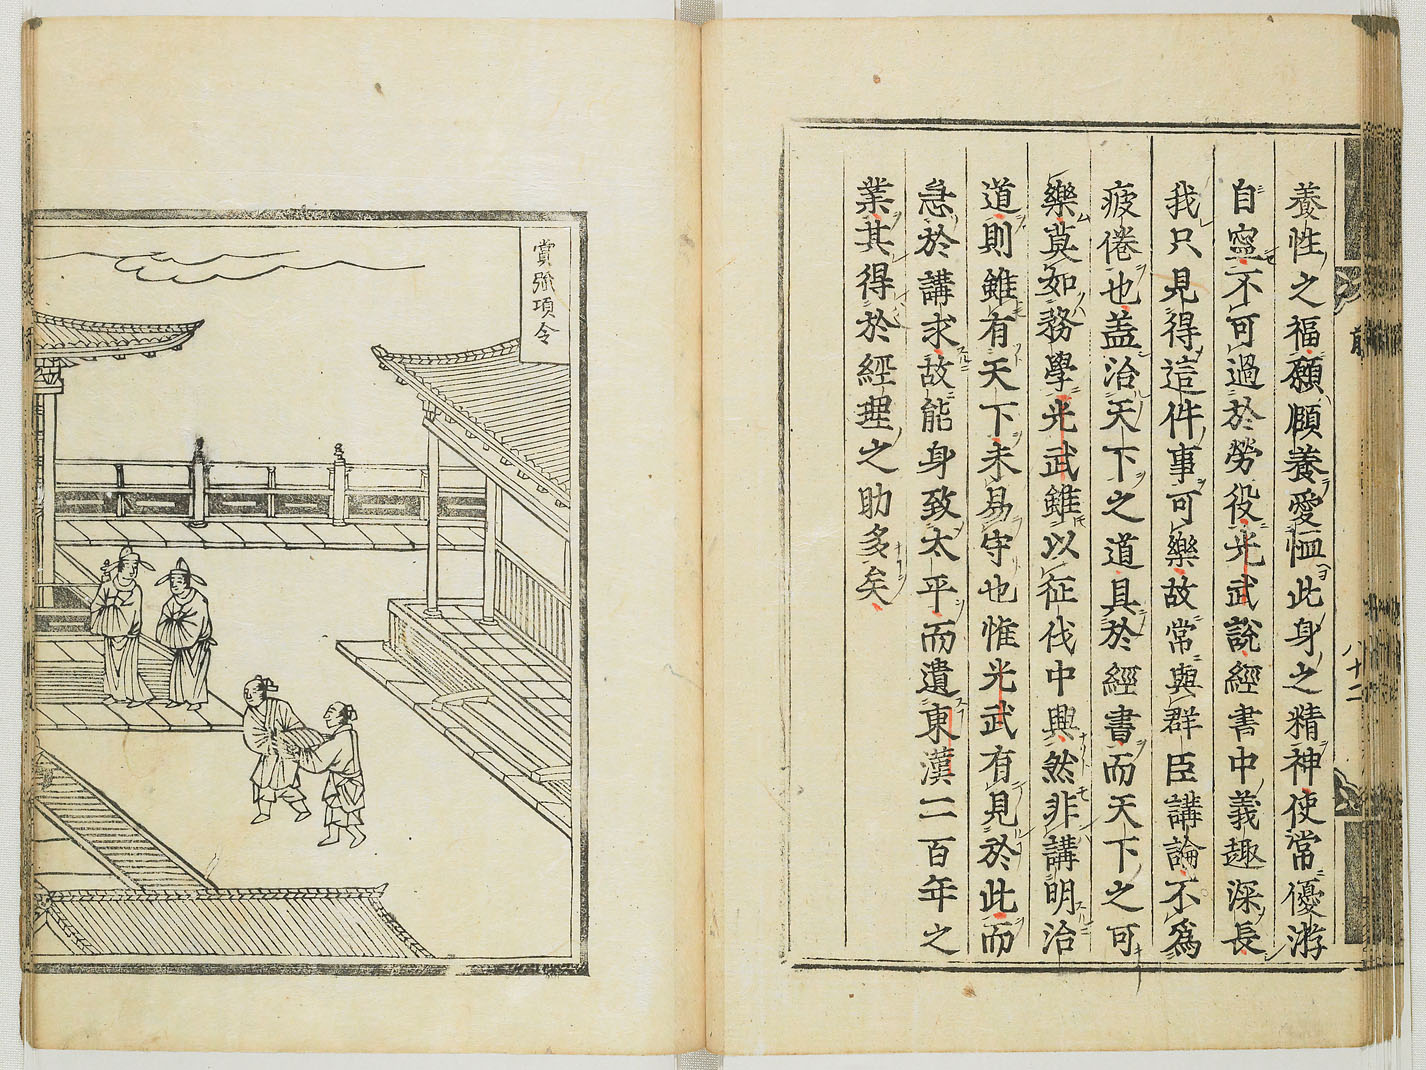 養性之福願頤養愛恤此身之精神使常優游
自寧不可過於勞役光武說經書中義趣深長
我只見得這件事可樂故常與群臣講論不爲
疲倦也盖治天下之道具於經書而天下之可
樂莫如務學光武雖以征伐中興然非講明治
道則雖有天下未易守也惟光武有見於此而
急於講求故能身致太平而遺東漢二百年之
業其得於經理之助多矣
八十二
賞強項令